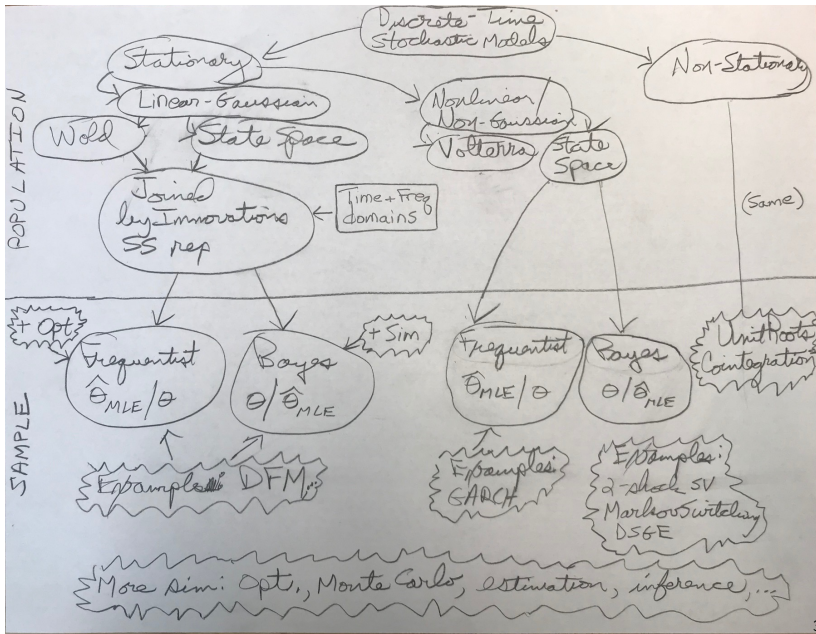 Discrete-Time
Stochastic Models
Stationary
Non-Stationary
Linear-Gaussian
Nonlinear/
Non-Gaussian
Wold
State Space
Volterra
State
Space
Joined
by Innovations
SS rep
Time + Freq
domains
(Same)
POPULATION
SAMPLE
+ Opt
Frequentist
θ̂MLE/θ
Bayes
θ/θ̂MLE
+ Sim
Frequentist
θ̂MLE/θ
Bayes
θ/θ̂MLE
Unit Roots
Cointegration
Examples: DFM...
Examples:
GARCH
Examples:
2-shock SV
Markov Switching
DSGE
More sim: Opt., Monte Carlo, estimation, inference,...
3